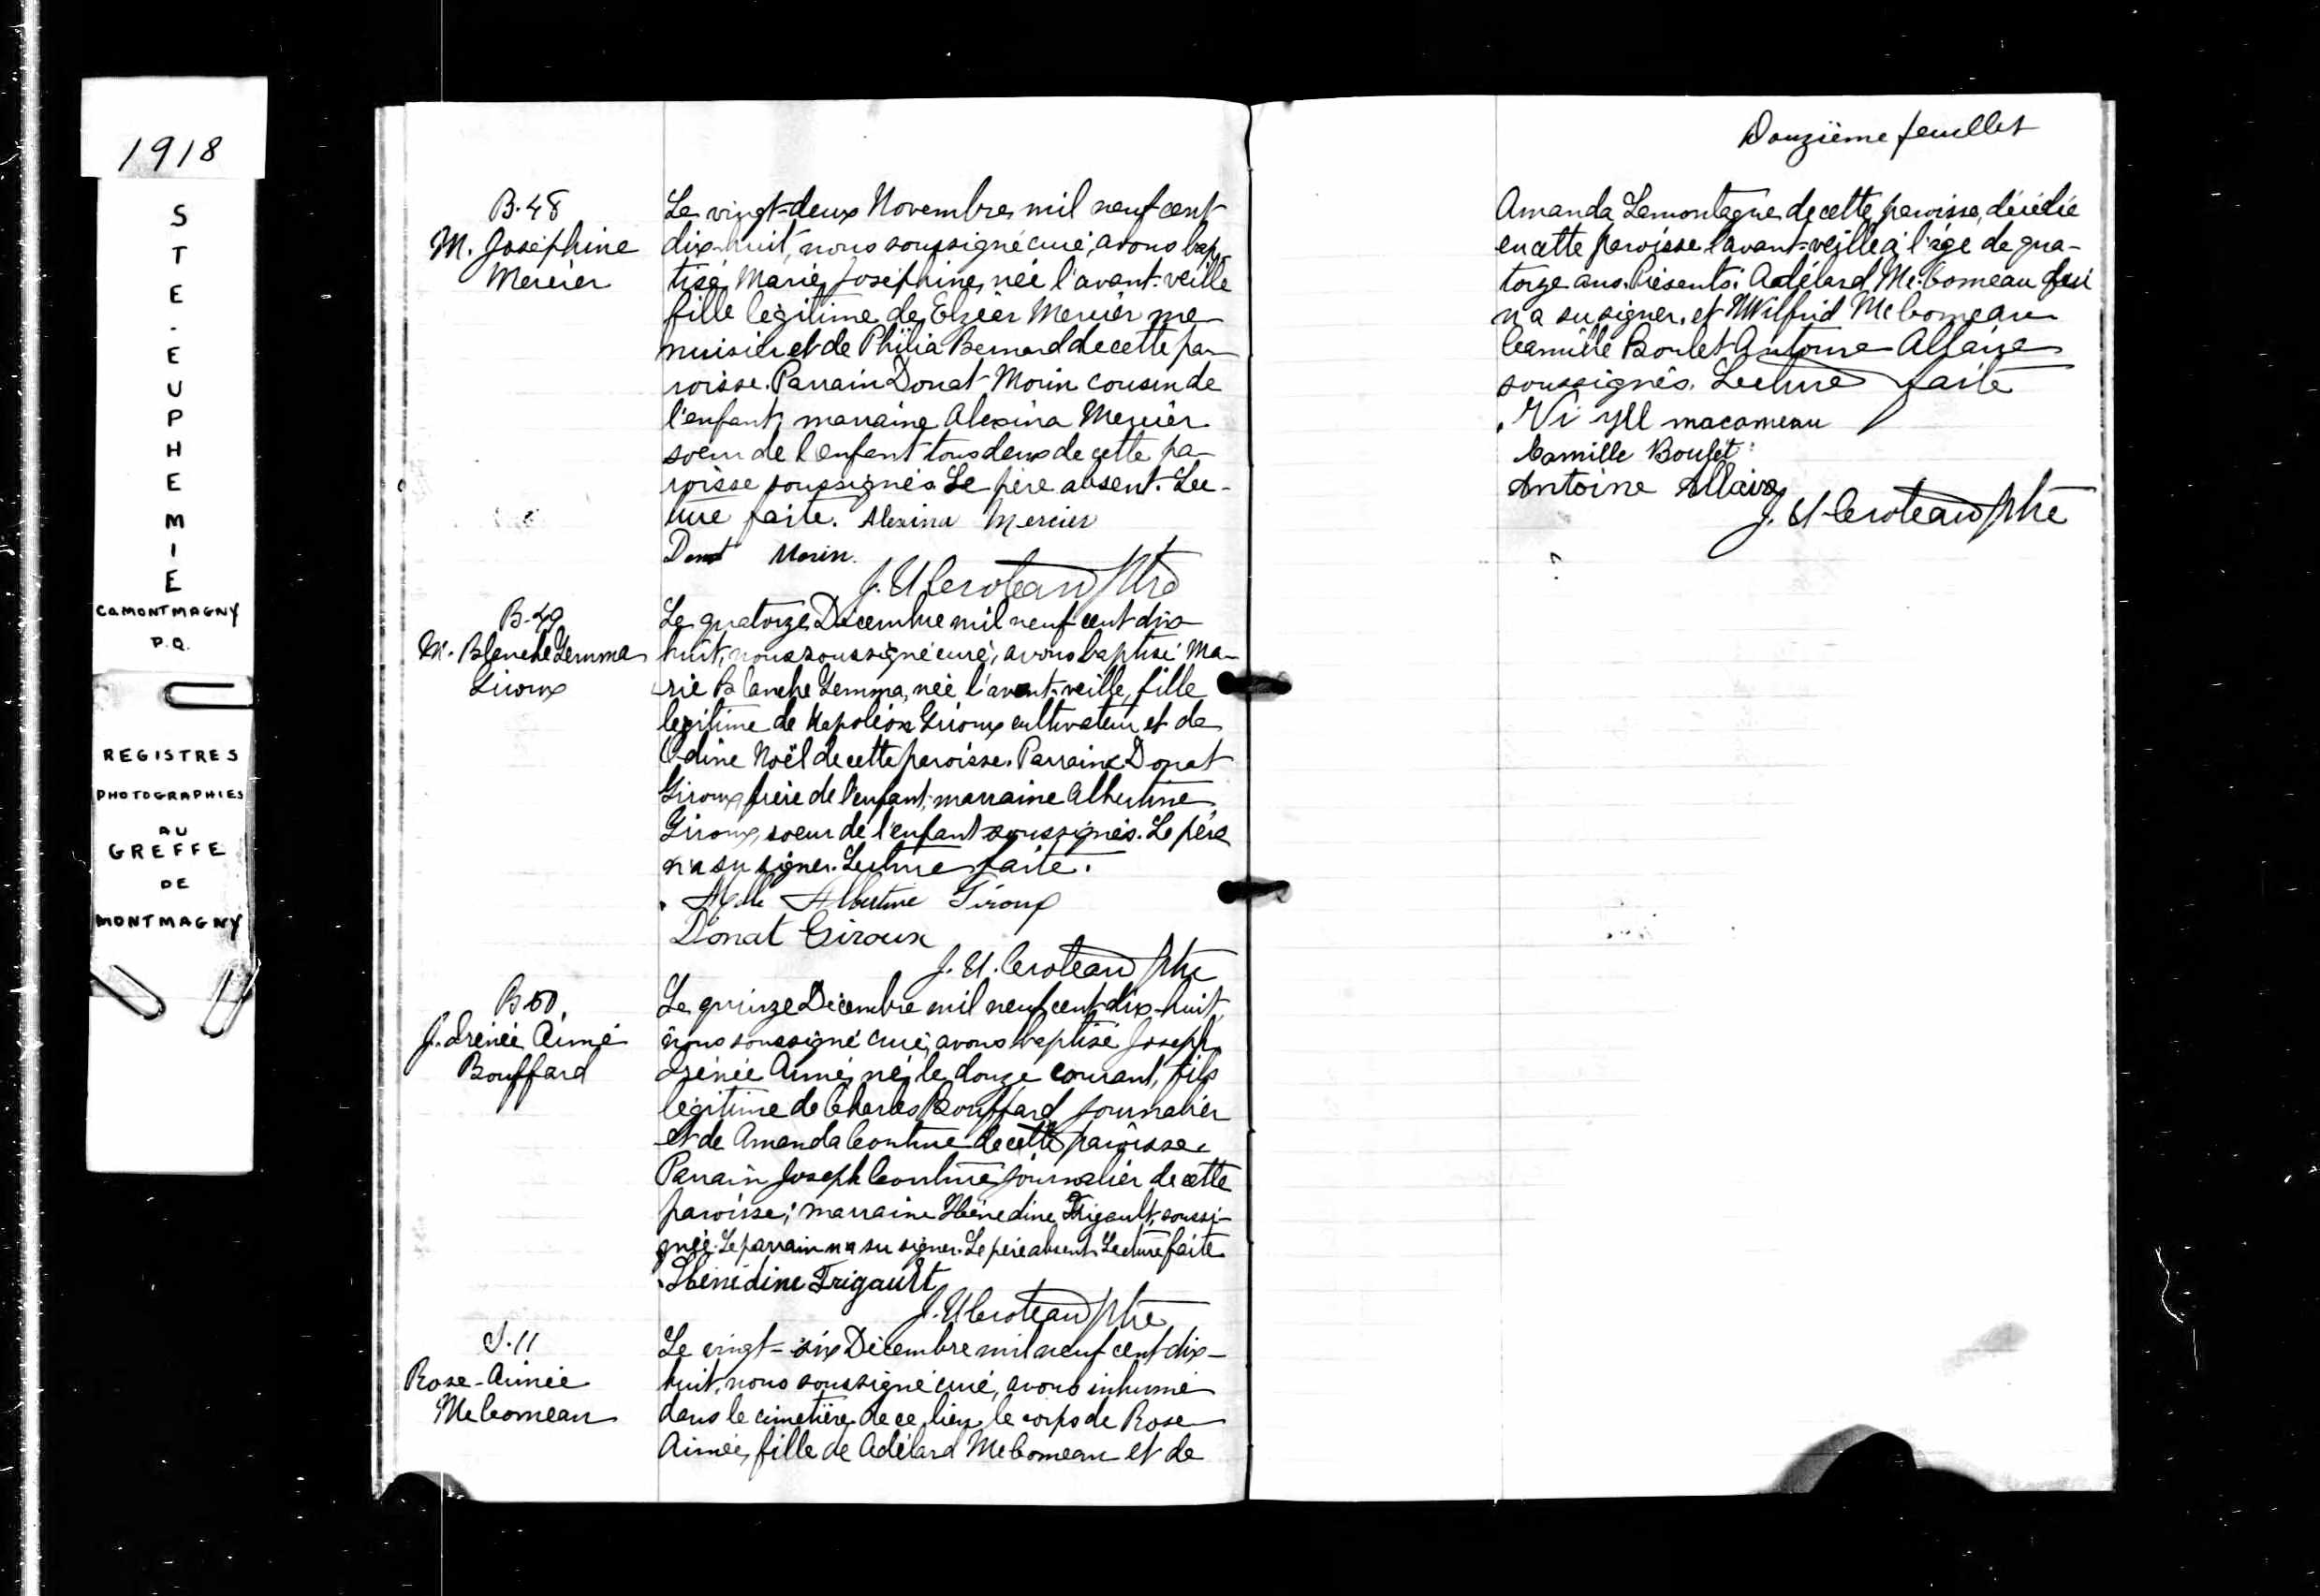 1918
STE-EUPHEMIE
CO MONTMAGNY
P.Q.
REGISTRES
PHOTOGRAPHIES
AU
GREFFE
DE
MONTMAGNY
B.48
M. Joséphine
Mercier
Le vingt-deux Novembre mil neuf cent
dix-huit, nous soussigné curé, avons bap-
tisé Marie Joséphine, née l'avant-veille
fille légitime de Elzéar Mercier me-
nuisier et de Philia Bernard de cette pa-
roisse. Parrain Donat Morin cousin de
l'enfant, marraine Alexina Mercier
soeur de l'enfant tous deux de cette pa-
roisse soussignés. Le père absent. Lec-
ture faite. Alexina Mercier
Donat Morin.
J. U Croteau Ptre
B-49
M. Blanche Gemma
Giroux
Le quatorze Décembre mil neuf cent dix-
huit, nous soussigné curé, avons baptisé Ma-
rie Blanche Gemma, née l'avant-veille, fille
légitime de Napoléon Giroux cultivateur et de
Odine Noël de cette paroisse. Parrain Donat
Giroux frère de l'enfant, marraine Albertine
Giroux, soeur de l'enfant soussignés. Le père
n'a su signer. Lecture faite.
Melle Albertine Giroux
Donat Giroux
J. U. Croteau Ptre
B-50.
J. Irénée Aimé
Bouffard
Le quinze Décembre mil neuf cent dix-huit,
nous soussigné curé, avons baptisé Joseph
Irénée Aimé, né le douze courant, fils
légitime de Charles Bouffard journalier
et de Amanda Couture de cette paroisse.
Parrain Joseph Couture journalier de cette
paroisse; marraine Hénédine Trigault, soussi-
gnée. Le parrain n'a su signer. Le père absent. Lecture faite
Hénédine Trigault
J. U Croteau Ptre
S.11
Rose-Aimée
McComeau
Le vingt-six Décembre mil neuf cent dix-
huit, nous soussigné curé, avons inhumé
dans le cimetière de ce lieu le corps de Rose
Aimée, fille de Adélard McComeau et de
Douzième feuillet
Amanda Lamontagne de cette paroisse, décédée
en cette paroisse l'avant-veille à l'âge de qua-
torze ans. Présents: Adélard McComeau qui
n'a su signer, et Wilfrid McComeau
Camille Boulet Antoine Allaire
soussignés. Lecture faite
macomeau
Camille Boulet
Antoine Allaire
J. U Croteau Ptre